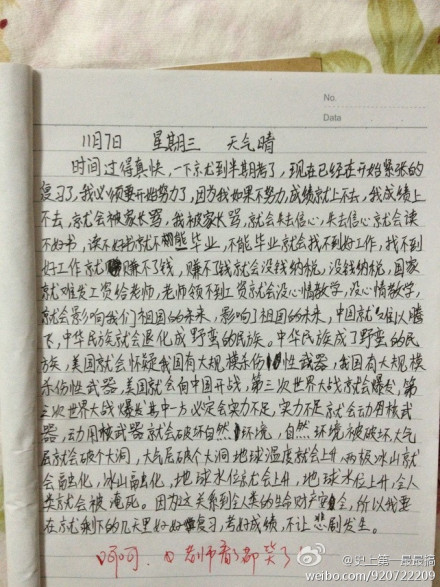 No.
Data
11月7日 星期三 天气晴
时间过得真快,一下京尤到半期考了,现在已经走开始紧张的
复习了,我必须要开始努力了,因为我如果不努力,成绩就上不去,我成绩上
不去,就会被家长骂,我被家长骂,就会失去信心,失去信心就会读
不好书,读不好书就不能毕业,不能毕业就会找不到好工作,找不到
好工作就赚不了钱,赚不了钱就会没钱纳税,没钱纳税,国家
就难发工资给老师,老师领不到工资就会没心情教学,没心情教学,
就会影响我们祖国的未来,影响了祖国的未来,中国就难以腾
飞,中华民族就会退化成野蛮的民族。中华民族成了野蛮的民
族,美国就会怀疑我国有大规模杀伤性武器,我国有大规模
杀伤性武器,美国就会向中国开战,第三次世界大战就会爆发,第
三次世界大战爆发其中一方必定会实力不足,实力不足就会动用核武
器,动用核武器就会破坏自然环境,自然环境被破坏,大气
层就会破个大洞,大气层破个大洞地球温度就会上升,两极冰山就
会融化,冰山融化,地球水位就会上升,地球水位上升,全人
类就会被淹死。因为这关系到全人类的生命财产安全,所以我要
在就剩下的几天里好好复习,考好成绩,不让悲剧发生。
呵呵。老师看了都笑了
@史上第一最最搞
weibo.com/920722209